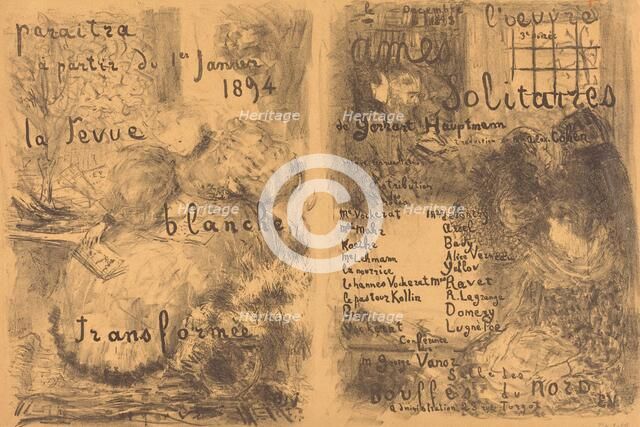 paraitra
à partir du 1er Janvier
1894
la revue
blanche
transformée
le Decembre
1893
l'oeuvre
3e soirée
ames
Solitaires
de Gerhart Hauptmann
traduction de Mr alex. Cohen
distribution
Mr Vockerat
Me Mahr
Kaethe
Me Lehmann
la nourrice
Johannes Vockerat
le pasteur Kollin
arel
Bady
Alice Verneau
Jollov
Mrs Ravet
R. Lagrange
Domeny
Lugné Poe
Conférence
Mr George Vanor
Salle des
Bouffes du Nord
administration 23 rue Turgot
EV
Heritage
Heritage
Heritage
Heritage
Heritage
Heritage
Heritage